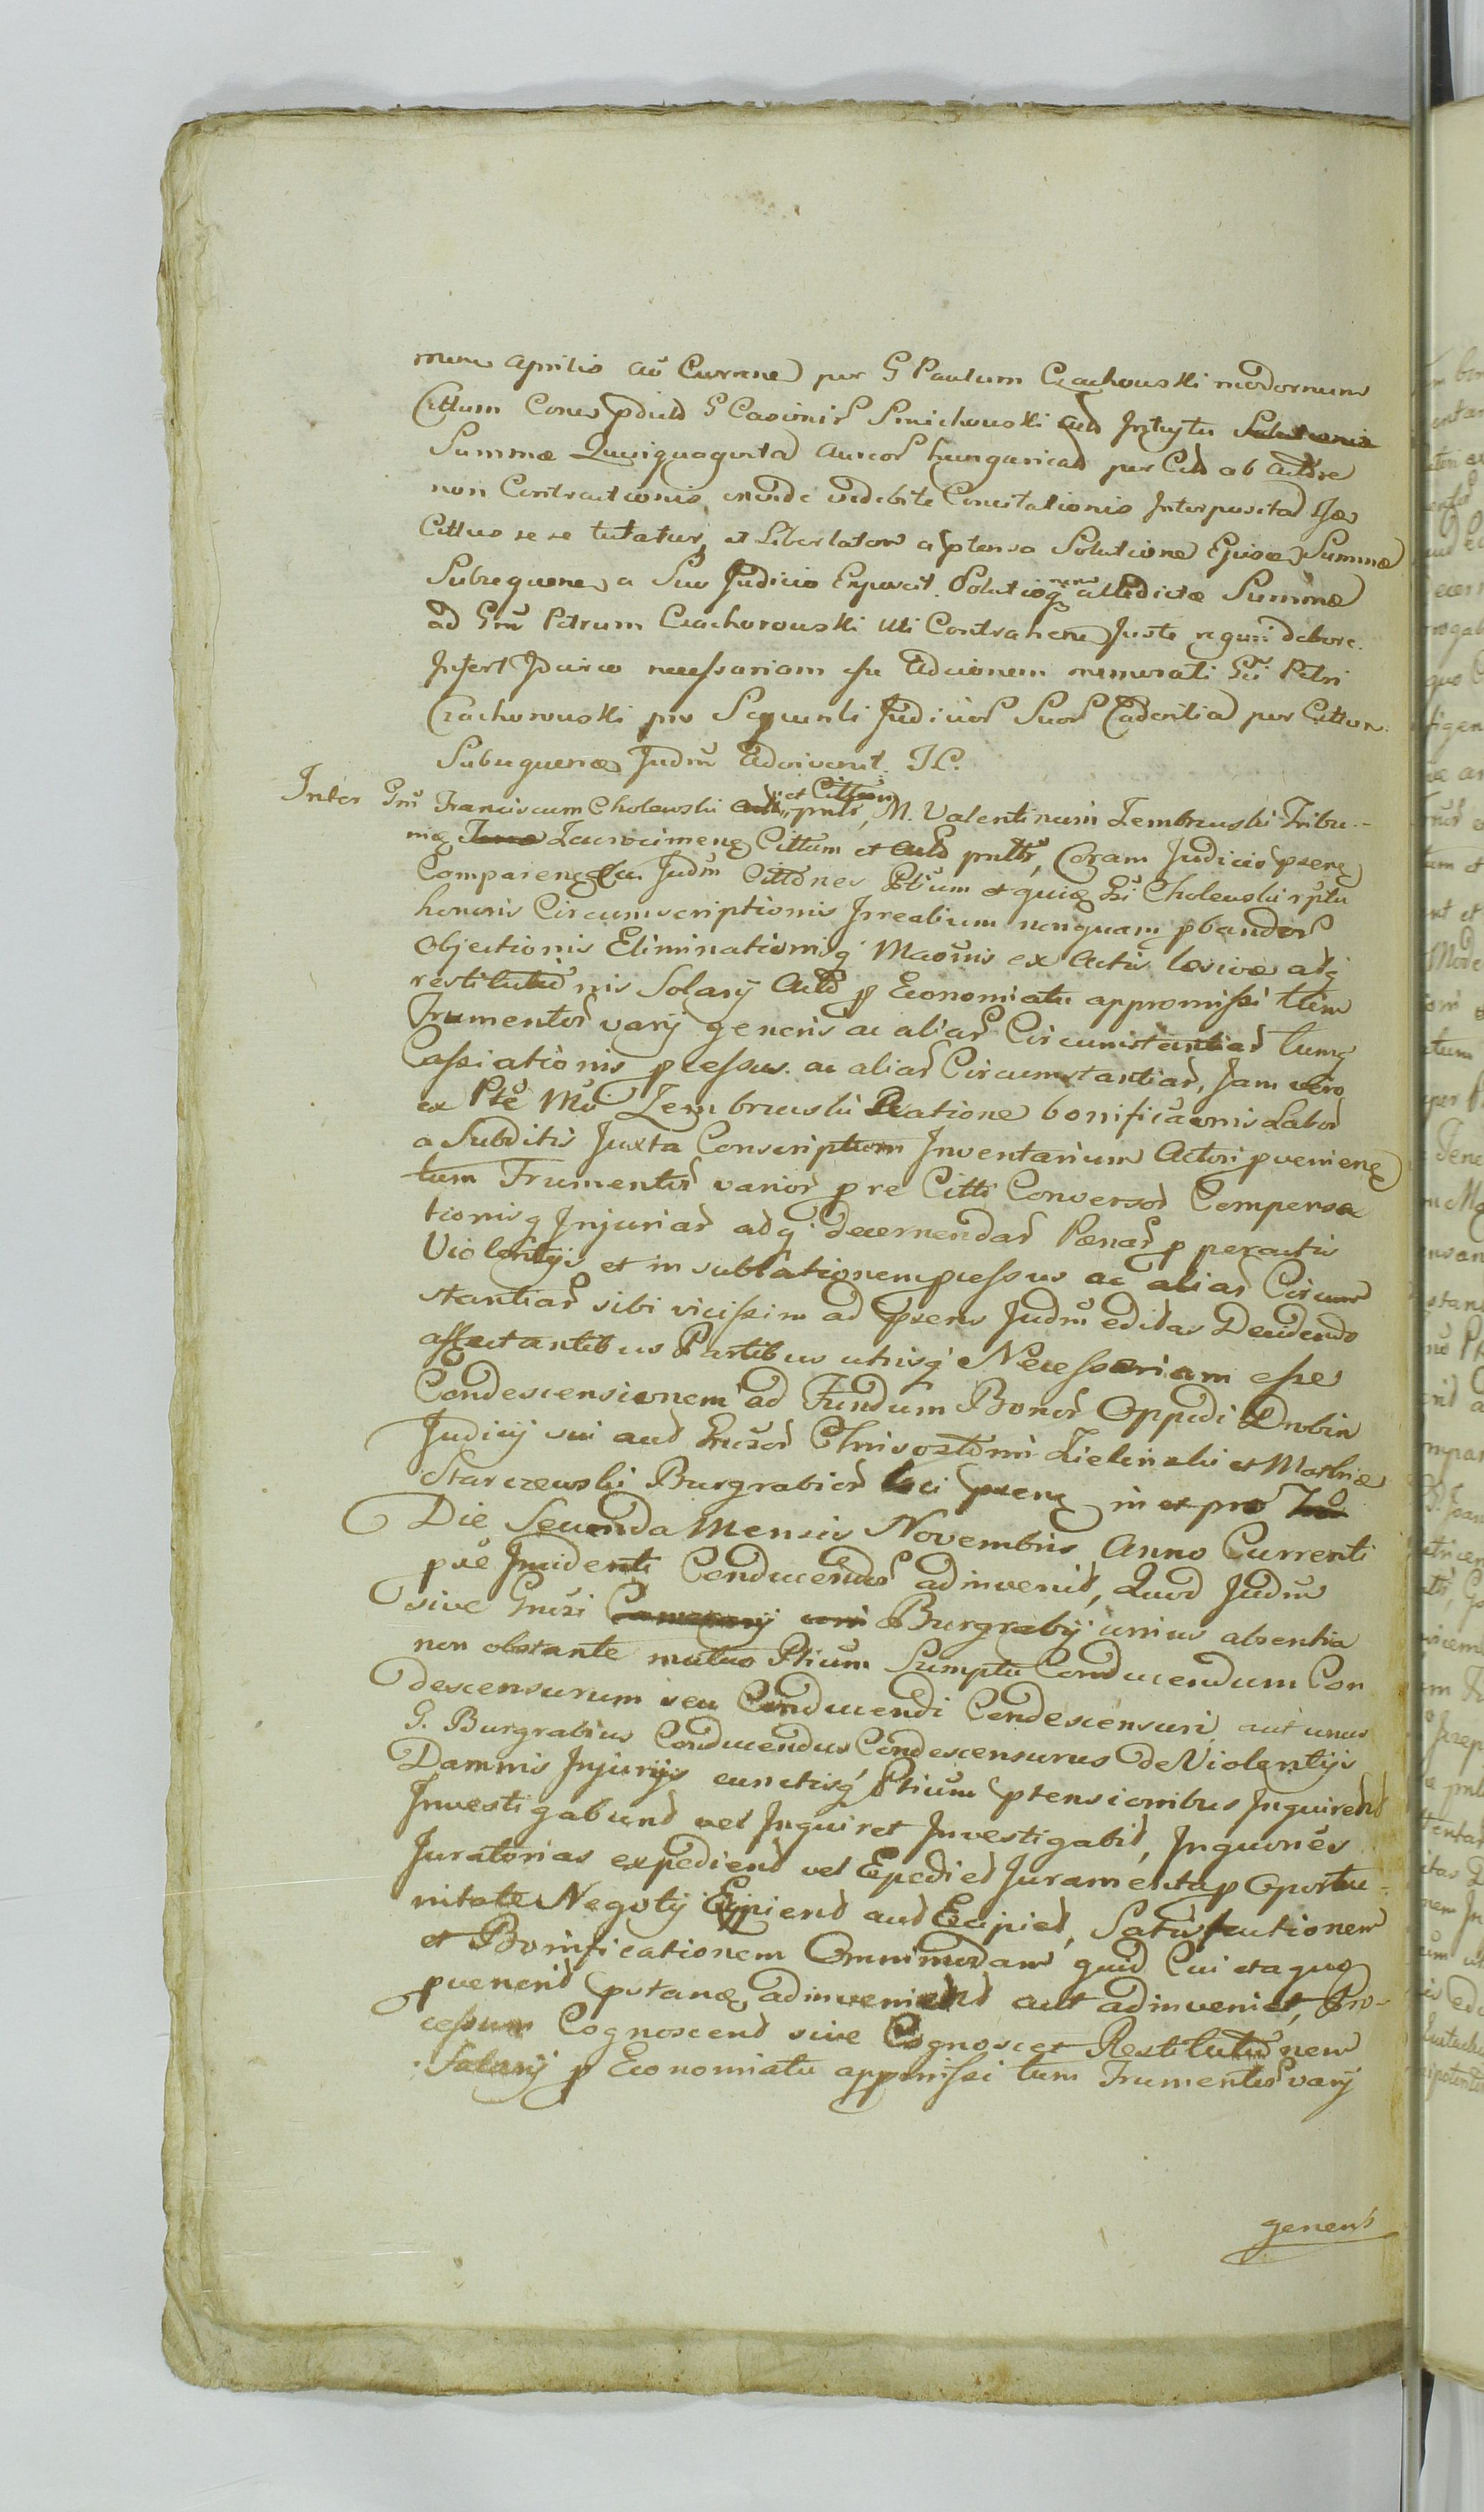 mene Aprilis aū Currne per G Paulum Czachowski modernum
Cittum Coner pduld G Casimir Smichowski Actd Intuytu Solutionis
Summæ Quinquaginta Aureor hungaricad per Citt ab Actore
non Contractionis, inide indebite Concitationis Interposita
Cittus se se tutatur, et Libertatem a ptensa Solutione Ejusce Summæ
Subsequene a Suo Judicio Exposcit. Solutioq nem allidictæ Summæ
ad Gnū Petrum Czachorowski uti Contrahene Juste reguri debere.
Infert Idcirco necessariam esse Adcionem memorati Gū Petri
Czachorowski pro Sequenti Judicior Suor Cadentia per Cittum
Subsequenæ Judm Adcivenit. J.C.
Inter Gnū Franciscum Cholewski Actt pntt, et Cittum M. Valentinum Zembrzuski Tribu-
niq Terræ Zawscimenq Cittum et Actd pntt, Coram Judicio psene
Comparenq Qu Judm Cittones Ptium et quiq Gū Cholewski rptu
honoris Circumscriptionis Irrealium nunquam pbandor
Objectionis Eliminationisq Maonis ex Actis læsivæ adq
restitutionis Solarÿ Actd p Economiatu appromissi ttim
Frumentor varÿ generis ac aliar Circumstantiar tumq
Cassiationis pcessus ac aliar Circumstantiar, Jam vero
ex Pte Mū Zembrzuski Ratione bonificaonis Labor
a Subditis Juxta Conscriptum Inventarium Actori pvenienq
tum Frumentor varior p re Citti Conversor Compensa
tionisq Injuriar adq decernendar Pænar p peractis
Violentÿs et in sublationem pcessus ac aliar Circum
stantiar sibi vicissim ad psens Judm editas Decidendo
affectantibus Partibus utrisq Necessariam esse
Condescensionem ad Fundum Bonor Oppidi Drobin
Judicÿ sui aud Gnusor Chrisostomi Zielinski et Mathiæ
Starczewski Burgrabior loci psenq in et pro
Die Secunda Mensis Novembris Anno Currenti
pse Incidenti Conducendor adinvenit, Quod Judm
sive Gnusi Burgrabÿ unius absentia
non obstante mutuo Ptium Sumptu Conducendum Con
descensurum seu Conducendi Condescensuri, aut unus
G. Burgrabius Conducendus Condescensurus de Violentÿs
Damnis Injurÿs cunctisq Ptium ptensionibus Inquirend
Investigabund vel Inquiret Investigabit, Inquiones
Juratorias expediend vel Expediet Juramenta p Oportu-
nitate Negotÿ Excipiend aud Excipiet, Satisfactionem
et Bonificationem Omnimodam quid Cui et a quo
pvenerit putanq adinveniend aut adinveniet, Pro-
cessum Cognoscend sive Cognoscet Restitutionem
Salarÿ p Economiatu appmissi tum Frumentor varÿ
generis